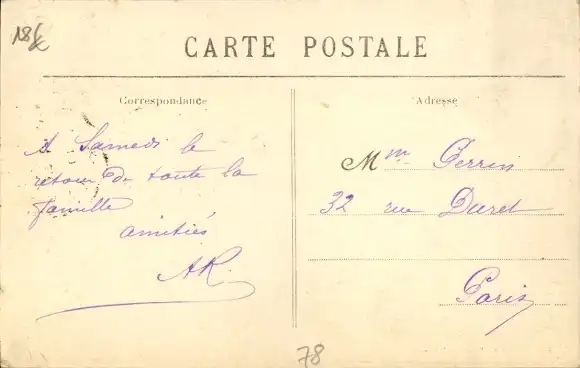 18£
CARTE POSTALE
Correspondance
à Samedi le
retour de toute la
famille
amitiés
AR.
Adresse
Mm Perrin
32 rue Duret
Paris
78